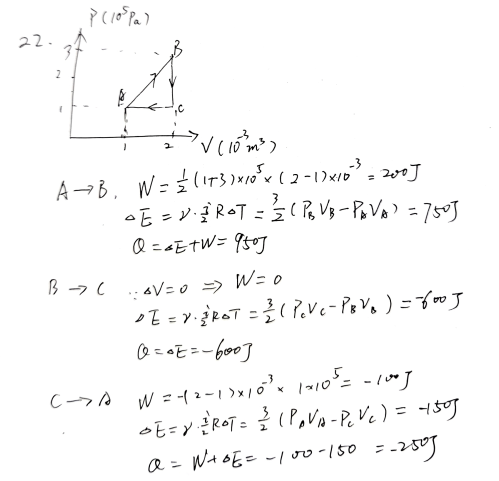 P(10⁵Pa)
22.
3
B
2
A
1
C
1 2 V(10⁻³m³)
A→B, W=½(1+3)×10⁵×(2-1)×10⁻³=200J
ΔE=ν·i/2RΔT=3/2(P_BV_B-P_AV_A)=750J
Q=ΔE+W=950J
B→C ∵ΔV=0 ⇒ W=0
ΔE=ν·i/2RΔT=3/2(P_CV_C-P_BV_B)=-600J
Q=ΔE=-600J
C→A W=-(2-1)×10⁻³×1×10⁵=-100J
ΔE=ν·i/2RΔT=3/2(P_AV_A-P_CV_C)=-150J
Q=W+ΔE=-100-150=-250J